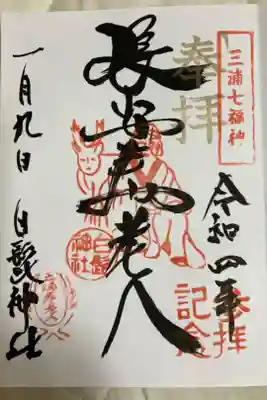 三浦七福神
奉拝
令和四年
参拝
記念
長安寿老人
白髭
神社
一月九日 白髭神社